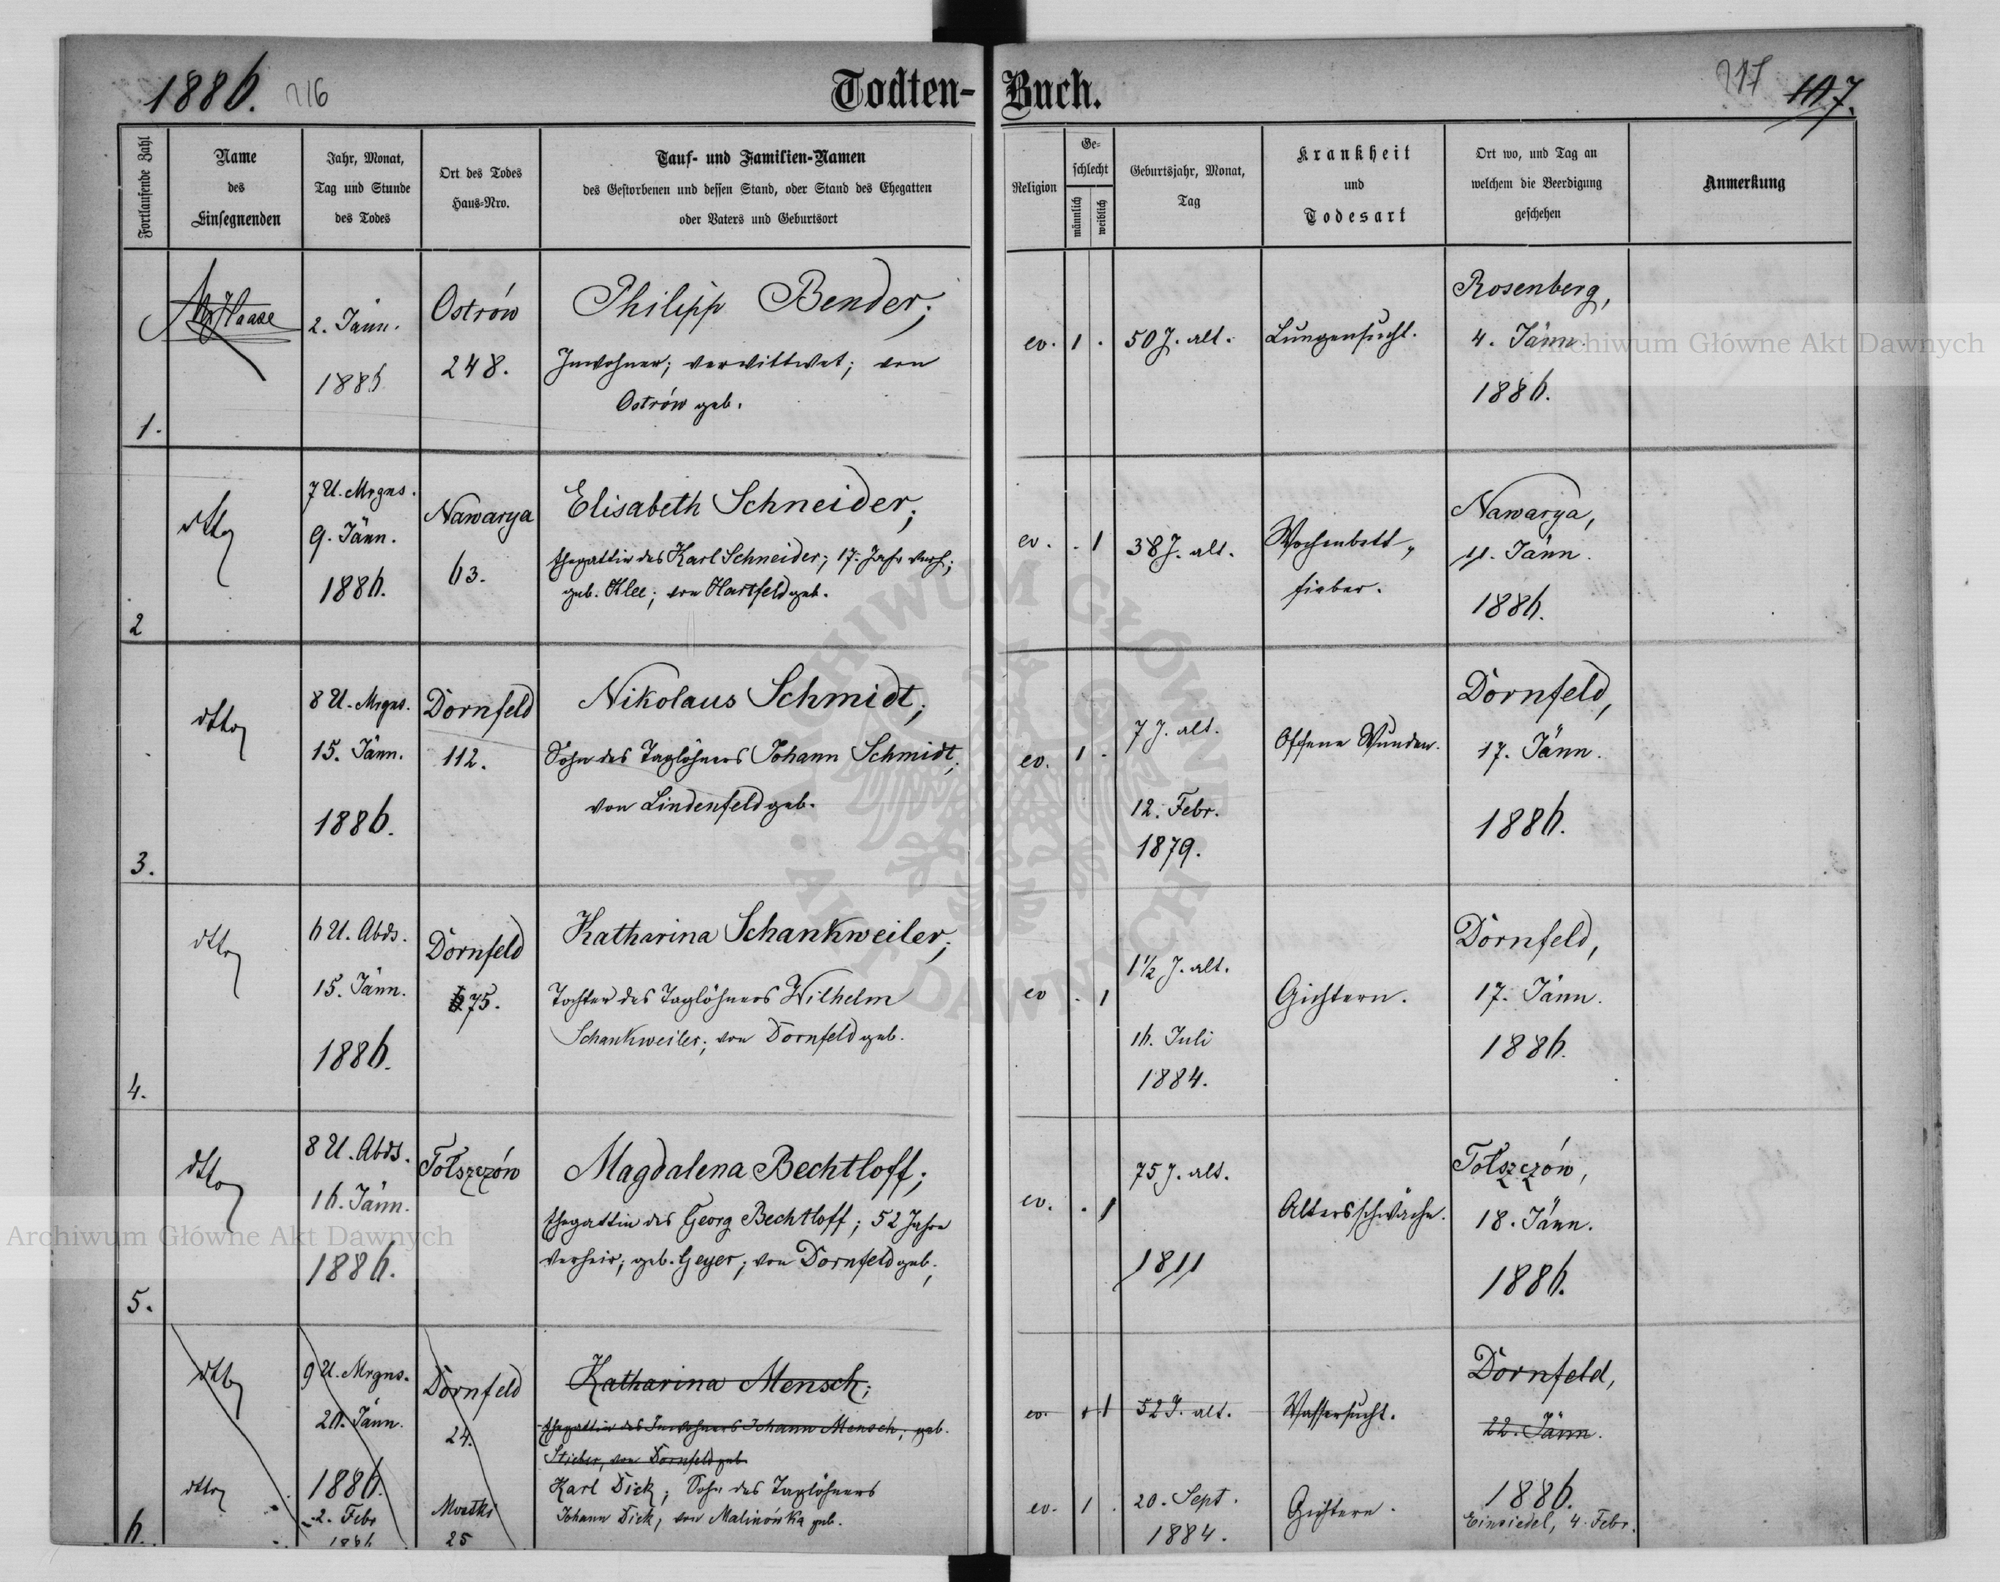 1886. 216
Todten-Buch.
217 107.
Fortlaufende Zahl
Name
des
Einsegnenden
Jahr, Monat,
Tag und Stunde
des Todes
Ort des Todes
Haus-Nro.
Tauf- und Familien-Namen
des Gestorbenen und dessen Stand, oder Stand des Ehegatten
oder Vaters und Geburtsort
Religion
Ge-
schlecht
männlich
weiblich
Geburtsjahr, Monat,
Tag
Krankheit
und
Todesart
Ort wo, und Tag an
welchem die Beerdigung
geschehen
Anmerkung
1.
Haase
2. Jänn.
1886
Ostrów
248.
Philipp Bender;
Inwohner; verwittwet; von
Ostrów geb.
ev. 1 .
50 J. alt.
Lungensucht.
Rosenberg,
4. Jänn.
1886.
2
dtto
7 U. Mrgns.
9. Jänn.
1886.
Nawarya
63.
Elisabeth Schneider;
Ehegattin des Karl Schneider; 17. Jahr verh;
geb. Klee; von Hartfeld geb.
ev. . 1
38 J. alt.
Wochenbett„
fieber.
Nawarya,
11. Jänn.
1886.
3.
dtto
8 U. Mrgns.
15. Jänn.
1886.
Dornfeld
112.
Nikolaus Schmidt;
Sohn des Taglöhners Johann Schmidt;
von Lindenfeld geb.
ev. 1 .
7 J. alt.
12. Febr.
1879.
Offene Wunden.
Dornfeld,
17. Jänn.
1886.
4.
dtto
6 U. Abds.
15. Jänn.
1886.
Dornfeld
75.
Katharina Schankweiler;
Tochter des Taglöhners Wilhelm
Schankweiler; von Dornfeld geb.
ev . 1
1½ J. alt.
16. Juli
1884.
Gichtern.
Dornfeld,
17. Jänn.
1886.
5.
dtto
8 U. Abds.
16. Jänn.
1886.
Tołszczów
Magdalena Bechtloff;
Ehegattin des Georg Bechtloff; 52 Jahre
verheir; geb. Geyer; von Dornfeld geb.;
ev. . 1
75 J. alt.
1811
Altersschwäche.
Tołszczów,
18. Jänn.
1886.
6.
dtto
9 U. Mrgns.
20. Jänn.
1886.
Dornfeld
24.
Katharina Mensch;
Ehegattin des Inwohners Johann Mensch; geb.
Stieber, von Dornfeld geb
ev. . 1
52 J. alt.
Wassersucht.
Dornfeld,
22. Jänn.
1886.
dtto
2. Febr
1886
Mostki
25
Karl Dick; Sohn des Taglöhners
Johann Dick; von Malinówka geb.
ev. 1 .
20. Sept.
1884.
Gichtern.
Einsiedel, 4. Febr.
Archiwum Główne Akt Dawnych
Archiwum Główne Akt Dawnych
ARCHIWUM GŁÓWNE AKT DAWNYCH